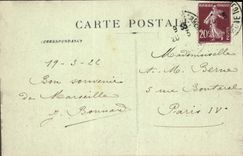 CARTE POSTALE
CORRESPONDANCE
19-3-26
Bon souvenir
de Marseille
J. Bonnard
Mademoiselle
A. M. Berne
5 rue Boutarel
Paris IVe
20c